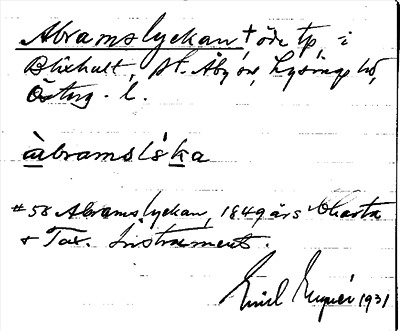 Abramslyckan † öde tp, i
Blixhult, St. Åby sn, Lysings hd,
Österg. l.
àbramsl`ẹka
#58 Abramslyckan, 1849 års Charta
& Tax. Instrument.
Emil 1931